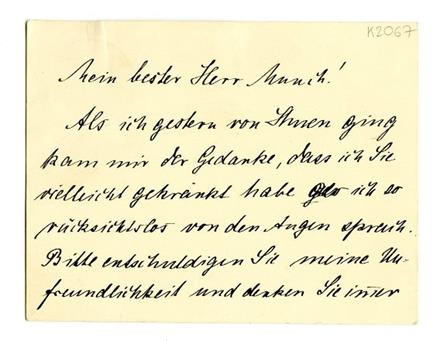 K2067
Mein bester Herr Munch!
Als ich gestern von Ihnen ging
kam mir der Gedanke, dass ich Sie
vielleicht gekränkt habe ich so
rücksichtslos von den Augen sprach.
Bitte entschuldigen Sie meine Un-
freundlichkeit und denken Sie immer